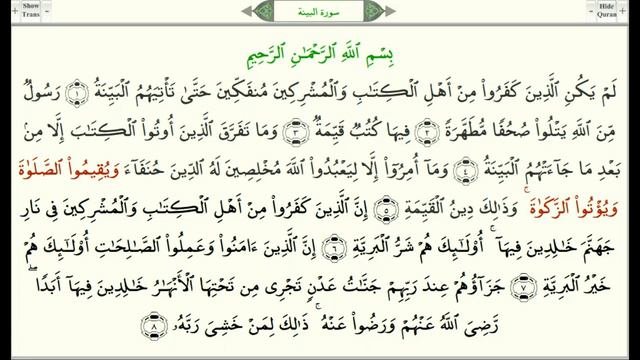 Show Trans
سورة البينة
Hide Quran
بِسْمِ ٱللَّهِ ٱلرَّحْمَـٰنِ ٱلرَّحِيمِ
لَمْ يَكُنِ ٱلَّذِينَ كَفَرُوا۟ مِنْ أَهْلِ ٱلْكِتَـٰبِ وَٱلْمُشْرِكِينَ مُنفَكِّينَ حَتَّىٰ تَأْتِيَهُمُ ٱلْبَيِّنَةُ ١ رَسُولٌ
مِّنَ ٱللَّهِ يَتْلُوا۟ صُحُفًا مُّطَهَّرَةً ٢ فِيهَا كُتُبٌ قَيِّمَةٌ ٣ وَمَا تَفَرَّقَ ٱلَّذِينَ أُوتُوا۟ ٱلْكِتَـٰبَ إِلَّا مِنۢ
بَعْدِ مَا جَآءَتْهُمُ ٱلْبَيِّنَةُ ٤ وَمَآ أُمِرُوٓا۟ إِلَّا لِيَعْبُدُوا۟ ٱللَّهَ مُخْلِصِينَ لَهُ ٱلدِّينَ حُنَفَآءَ وَيُقِيمُوا۟ ٱلصَّلَوٰةَ
وَيُؤْتُوا۟ ٱلزَّكَوٰةَ ۚ وَذَٰلِكَ دِينُ ٱلْقَيِّمَةِ ٥ إِنَّ ٱلَّذِينَ كَفَرُوا۟ مِنْ أَهْلِ ٱلْكِتَـٰبِ وَٱلْمُشْرِكِينَ فِى نَارِ
جَهَنَّمَ خَـٰلِدِينَ فِيهَآ ۚ أُو۟لَـٰٓئِكَ هُمْ شَرُّ ٱلْبَرِيَّةِ ٦ إِنَّ ٱلَّذِينَ ءَامَنُوا۟ وَعَمِلُوا۟ ٱلصَّـٰلِحَـٰتِ أُو۟لَـٰٓئِكَ هُمْ
خَيْرُ ٱلْبَرِيَّةِ ٧ جَزَآؤُهُمْ عِندَ رَبِّهِمْ جَنَّـٰتُ عَدْنٍ تَجْرِى مِن تَحْتِهَا ٱلْأَنْهَـٰرُ خَـٰلِدِينَ فِيهَآ أَبَدًا ۖ
رَّضِىَ ٱللَّهُ عَنْهُمْ وَرَضُوا۟ عَنْهُ ۚ ذَٰلِكَ لِمَنْ خَشِىَ رَبَّهُۥ ٨